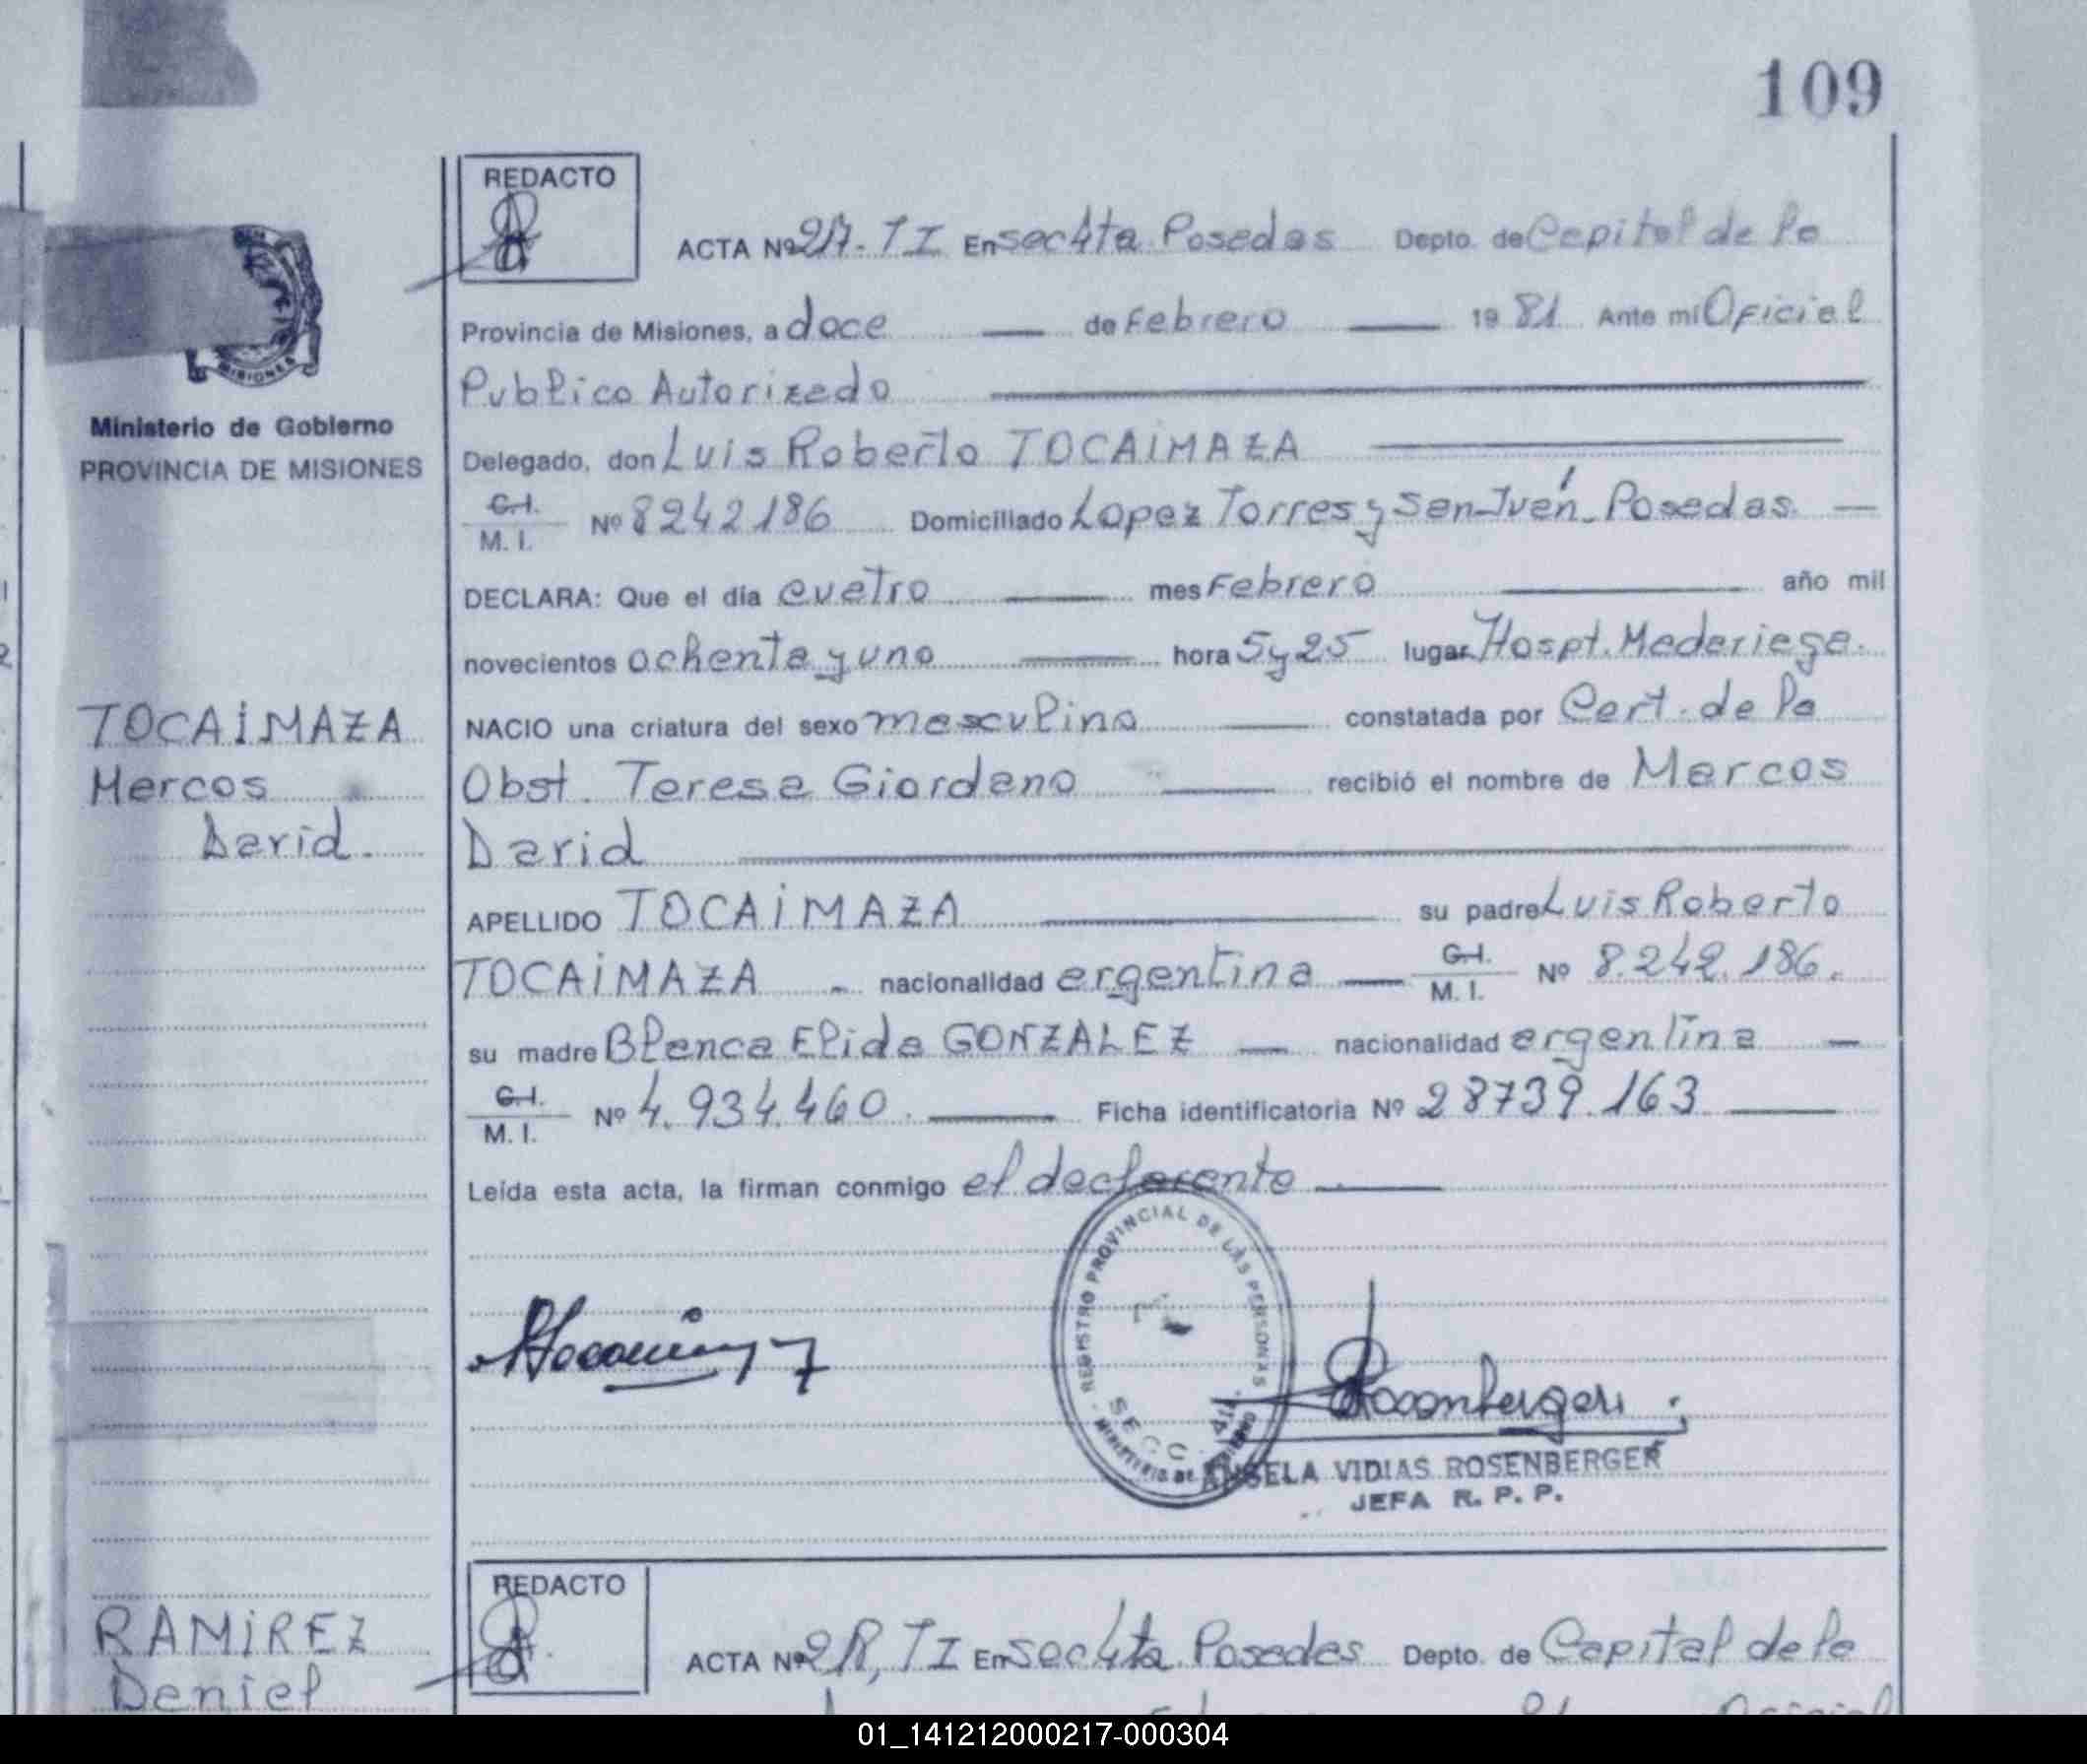 109
REDACTO
ACTA Nº 217. TI En Secc 4ta Posadas Depto. de Capital de la
Provincia de Misiones, a doce de Febrero 1981 Ante mi Oficial
Publico Autorizado
Ministerio de Gobierno
PROVINCIA DE MISIONES
Delegado, don Luis Roberto TOCAIMAZA
C.I.
M. I. Nº 8242186 Domiciliado Lopez Torres y San Juán - Posadas.
DECLARA: Que el día cuatro mes Febrero año mil
novecientos ochenta y uno hora 5y25 lugar Hospt. Madariaga.
TOCAIMAZA
Marcos
David.
NACIO una criatura del sexo masculino constatada por Cert. de la
Obst. Teresa Giordano recibió el nombre de Marcos
David
APELLIDO TOCAIMAZA su padre Luis Roberto
TOCAIMAZA - nacionalidad argentina C.I.
M. I. Nº 8.242.186.
su madre Blanca Elida GONZALEZ nacionalidad argentina
C.I.
M. I. Nº 4.934.460. Ficha identificatoria Nº 28739.163
Leída esta acta, la firman conmigo el declarante
REGISTRO PROVINCIAL DE LAS PERSONAS
SECC. 4ta
ANGELA VIDIAS ROSENBERGER
JEFA R. P. P.
RAMIREZ
Daniel
REDACTO
ACTA Nº TI En Secc 4ta Posadas Depto. de Capital de la
01_141212000217-000304